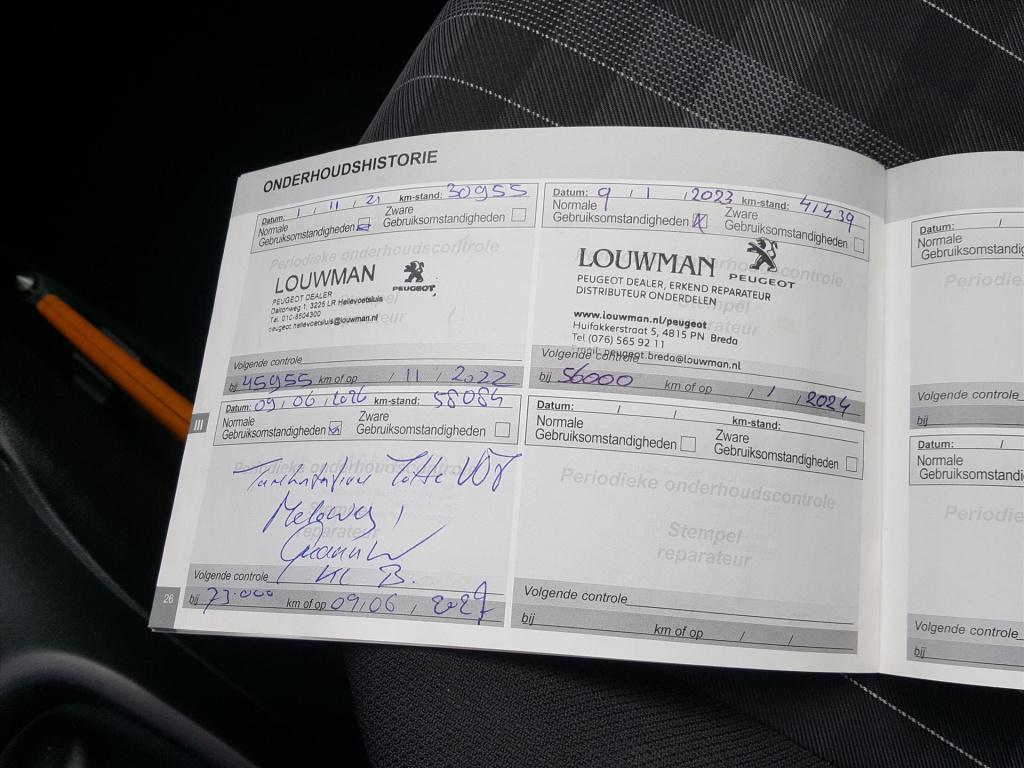 ONDERHOUDSHISTORIE
Datum: 1 / 11 / 21 km-stand: 30955
Normale
Gebruiksomstandigheden
Zware
Gebruiksomstandigheden
Periodieke onderhoudscontrole
LOUWMAN
PEUGEOT
PEUGEOT DEALER
Daltonweg 1, 3225 LR Hellevoetsluis
Tel. 010-8504300
peugeot.hellevoetsluis@louwman.nl
Volgende controle
bij 45955 km of op / 11 / 2022
Datum: 9 / 1 / 2023 km-stand: 41439
Normale
Gebruiksomstandigheden
Zware
Gebruiksomstandigheden
LOUWMAN
PEUGEOT
PEUGEOT DEALER, ERKEND REPARATEUR
DISTRIBUTEUR ONDERDELEN
Stempel
reparateur
www.louwman.nl/peugeot
Huifakkerstraat 5, 4815 PN Breda
Tel (076) 565 92 11
Email: peugeot.breda@louwman.nl
Volgende controle
bij 56000 km of op / 1 / 2024
III
Datum: 09 / 06 / 2026 km-stand: 58084
Normale
Gebruiksomstandigheden
Zware
Gebruiksomstandigheden
Periodieke onderhoudscontrole
reparateur
Volgende controle
bij 73.000 km of op 09.06 / 2027
26
Datum: / / km-stand:
Normale
Gebruiksomstandigheden
Zware
Gebruiksomstandigheden
Periodieke onderhoudscontrole
Stempel
reparateur
Volgende controle
bij km of op / /
Datum: /
Normale
Gebruiksomstandigheden
Periodie
Volgende controle
bij
Datum: /
Normale
Gebruiksomstandigheden
Periodie
Volgende controle
bij